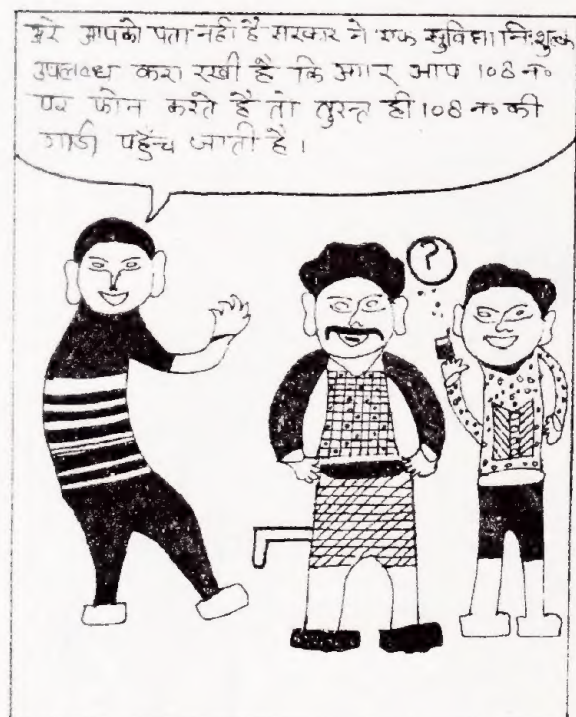 अरे आपको पता नहीं है सरकार ने एक सुविधा निःशुल्क
उपलब्ध करा रखी है कि अगर आप 108 न०
पर फोन करते है तो तुरन्त ही 108 न० की
गाडी पहुँच जाती है।
?